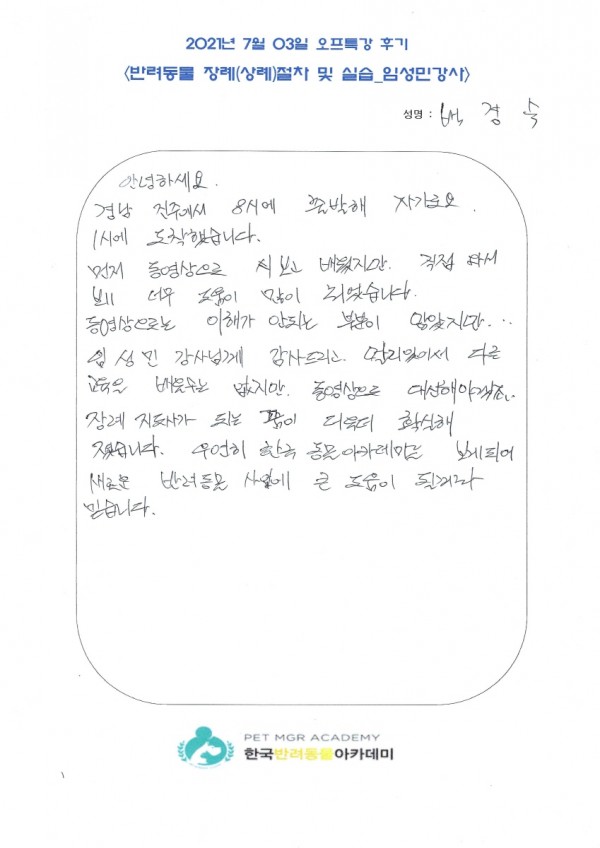 2021년 7월 03일 오프특강 후기
<반려동물 장례(상례)절차 및 실습_임성민강사>
성명 : 백 경 숙
안녕하세요.
경남 진주에서 8시에 출발해 자가로요.
1시에 도착했습니다.
먼저 동영상으로 보고 배웠지만. 직접 와서
보니 너무 도움이 많이 되었습니다.
동영상으로는 이해가 안되는 부분이 많았지만...
임성민 강사님게 감사드리고. 멀리있어서 다른
교육은 배울수는 없지만. 동영상으로 대신해야겠죠.
장례 지도사가 되는 꿈이 더욱더 확실해
졌습니다. 우연히 한국 동물아카데미를
새로운 반려동물 사업에 큰 도움이 될거라
믿습니다.
PET MGR ACADEMY
한국반려동물아카데미